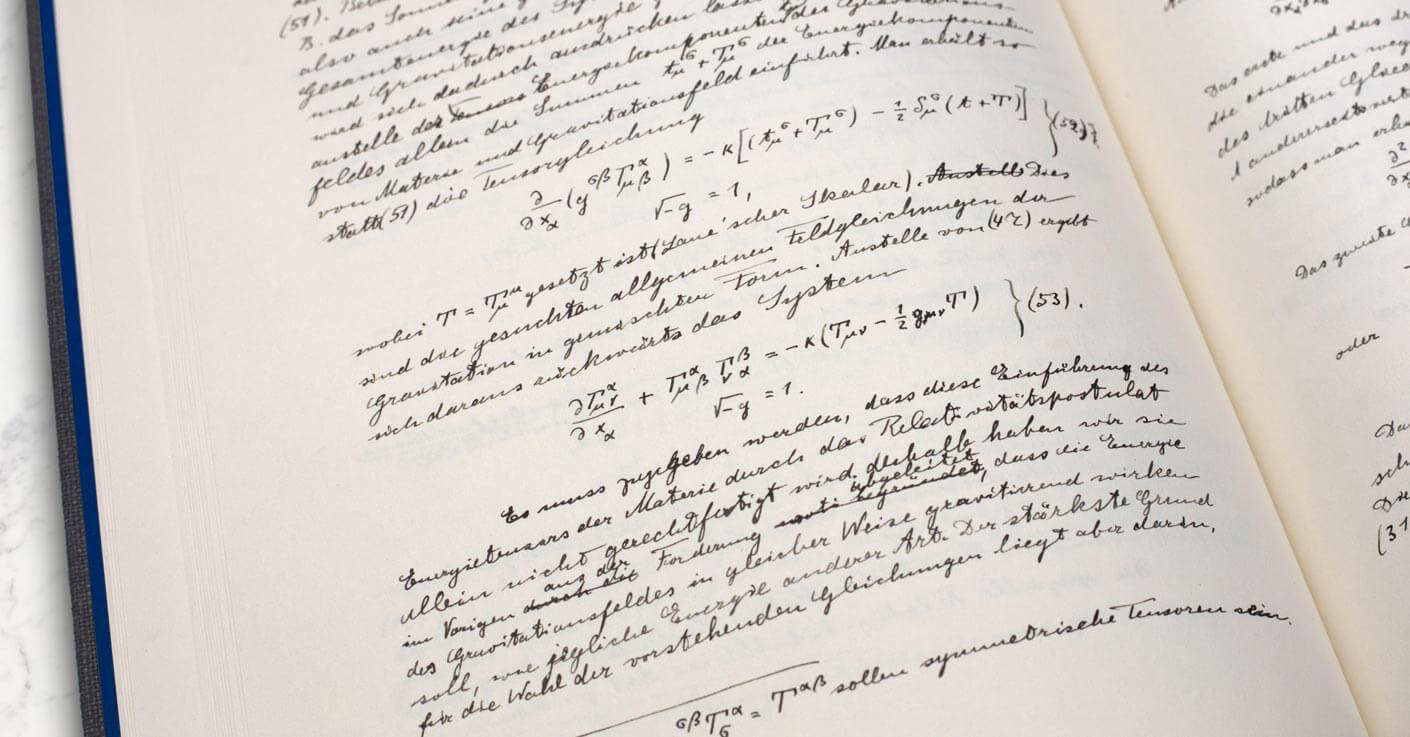 (51). 
B. das
also auch seine
Gesamtenergie des
und Gravitationsenergie
wird sich dadurch ausdrücken
anstelle der Energiekomponenten des Gravitations-
feldes allein die Summen t_μ^σ + T_μ^σ der Energiekomponenten
von Materie und Gravitationsfeld einführt. Man erhält so
statt (51) die Tensorgleichung
∂/∂x_α (g^{σβ} Γ_{μβ}^α) = -κ[(t_μ^σ + T_μ^σ) - ½ δ_μ^σ (t + T)] } (52),
√-g = 1,
wobei T = T_μ^μ gesetzt ist (Laue'scher Skalar). Anstelle Dies
sind die gesuchten allgemeinen Feldgleichungen der
Gravitation in gemischten Form. Anstelle von (47) ergibt
sich daraus rückwärts das System
∂Γ_{μν}^α/∂x_α + Γ_{μβ}^α Γ_{να}^β = -κ(T_{μν} - ½ g_{μν} T) } (53).
√-g = 1.
Es muss zugegeben werden, dass diese Einführung des
Energietensors der Materie durch das Relativitätspostulat
allein nicht gerechtfertigt wird. deshalb haben wir sie
im Vorigen durch die aus der Forderung abgeleitet, dass die Energie
des Gravitationsfeldes in gleicher Weise gravitierend wirken
soll, wie jegliche Energie anderer Art. Der stärkste Grund
für die Wahl der vorstehenden Gleichungen liegt aber darin,
g^{σβ} T_σ^α = T^{αβ} sollen symmetrische Tensoren sein.
Das erste und das
die einander
des dritten
andererseits
sodass man
Das zweite
oder